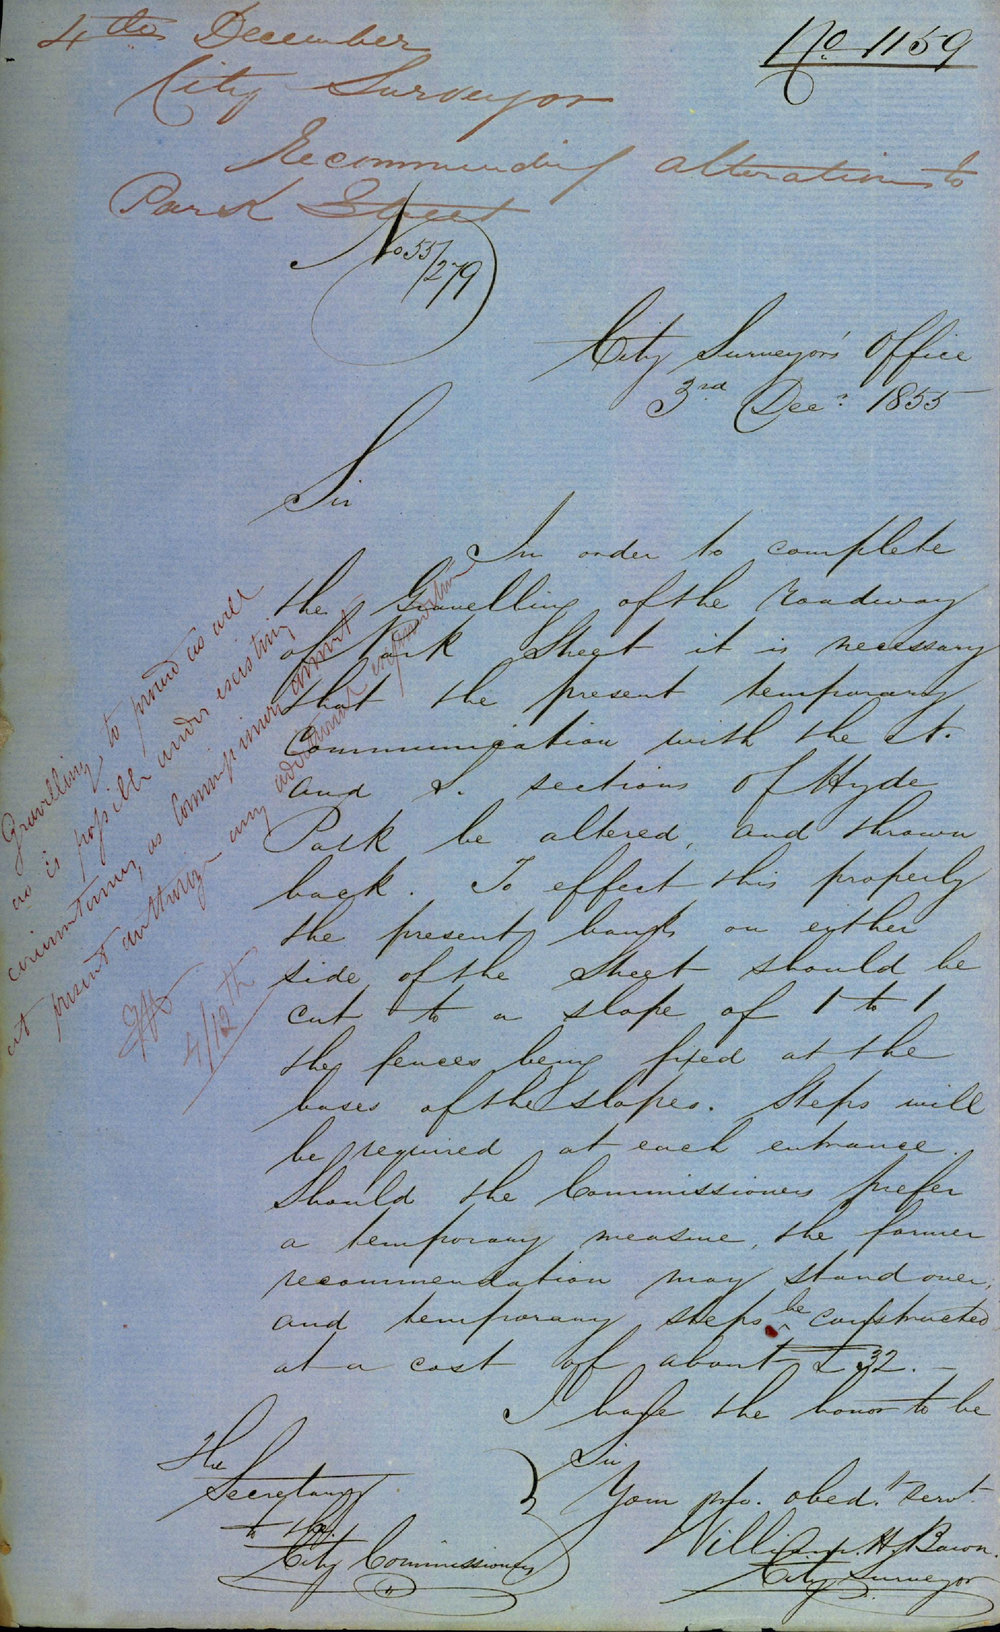 4th December
No 1159
City Surveyor
Recommending alterations to
Park Street
No 55/279
City Surveyor's Office
3rd Decr. 1855
Sir
In order to complete
the Gravelling of the Roadway
of Park Street it is necessary
that the present temporary
Communication with the N.
and S. sections of Hyde
Park be altered, and thrown
back. To effect this properly
the present banks on either
side of the Street should be
cut to a slope of 1 to 1
the fences being fixed at the
bases of the slopes. Steps will
be required at each entrance.
Should the Commissioners prefer
a temporary measure, the former
recommendation may stand over,
and temporary steps be constructed
at a cost of about £32. —
I have the honor to be
Sir
Your mo. obed.t servt.
William H. Baron.
City Surveyor
The
Secretary
to the
City Commissioners
Gravelling to proceed as well
as is possible under existing
circumstances, as Commissioners cannot
at present authorize any additional expenditure
4/12th